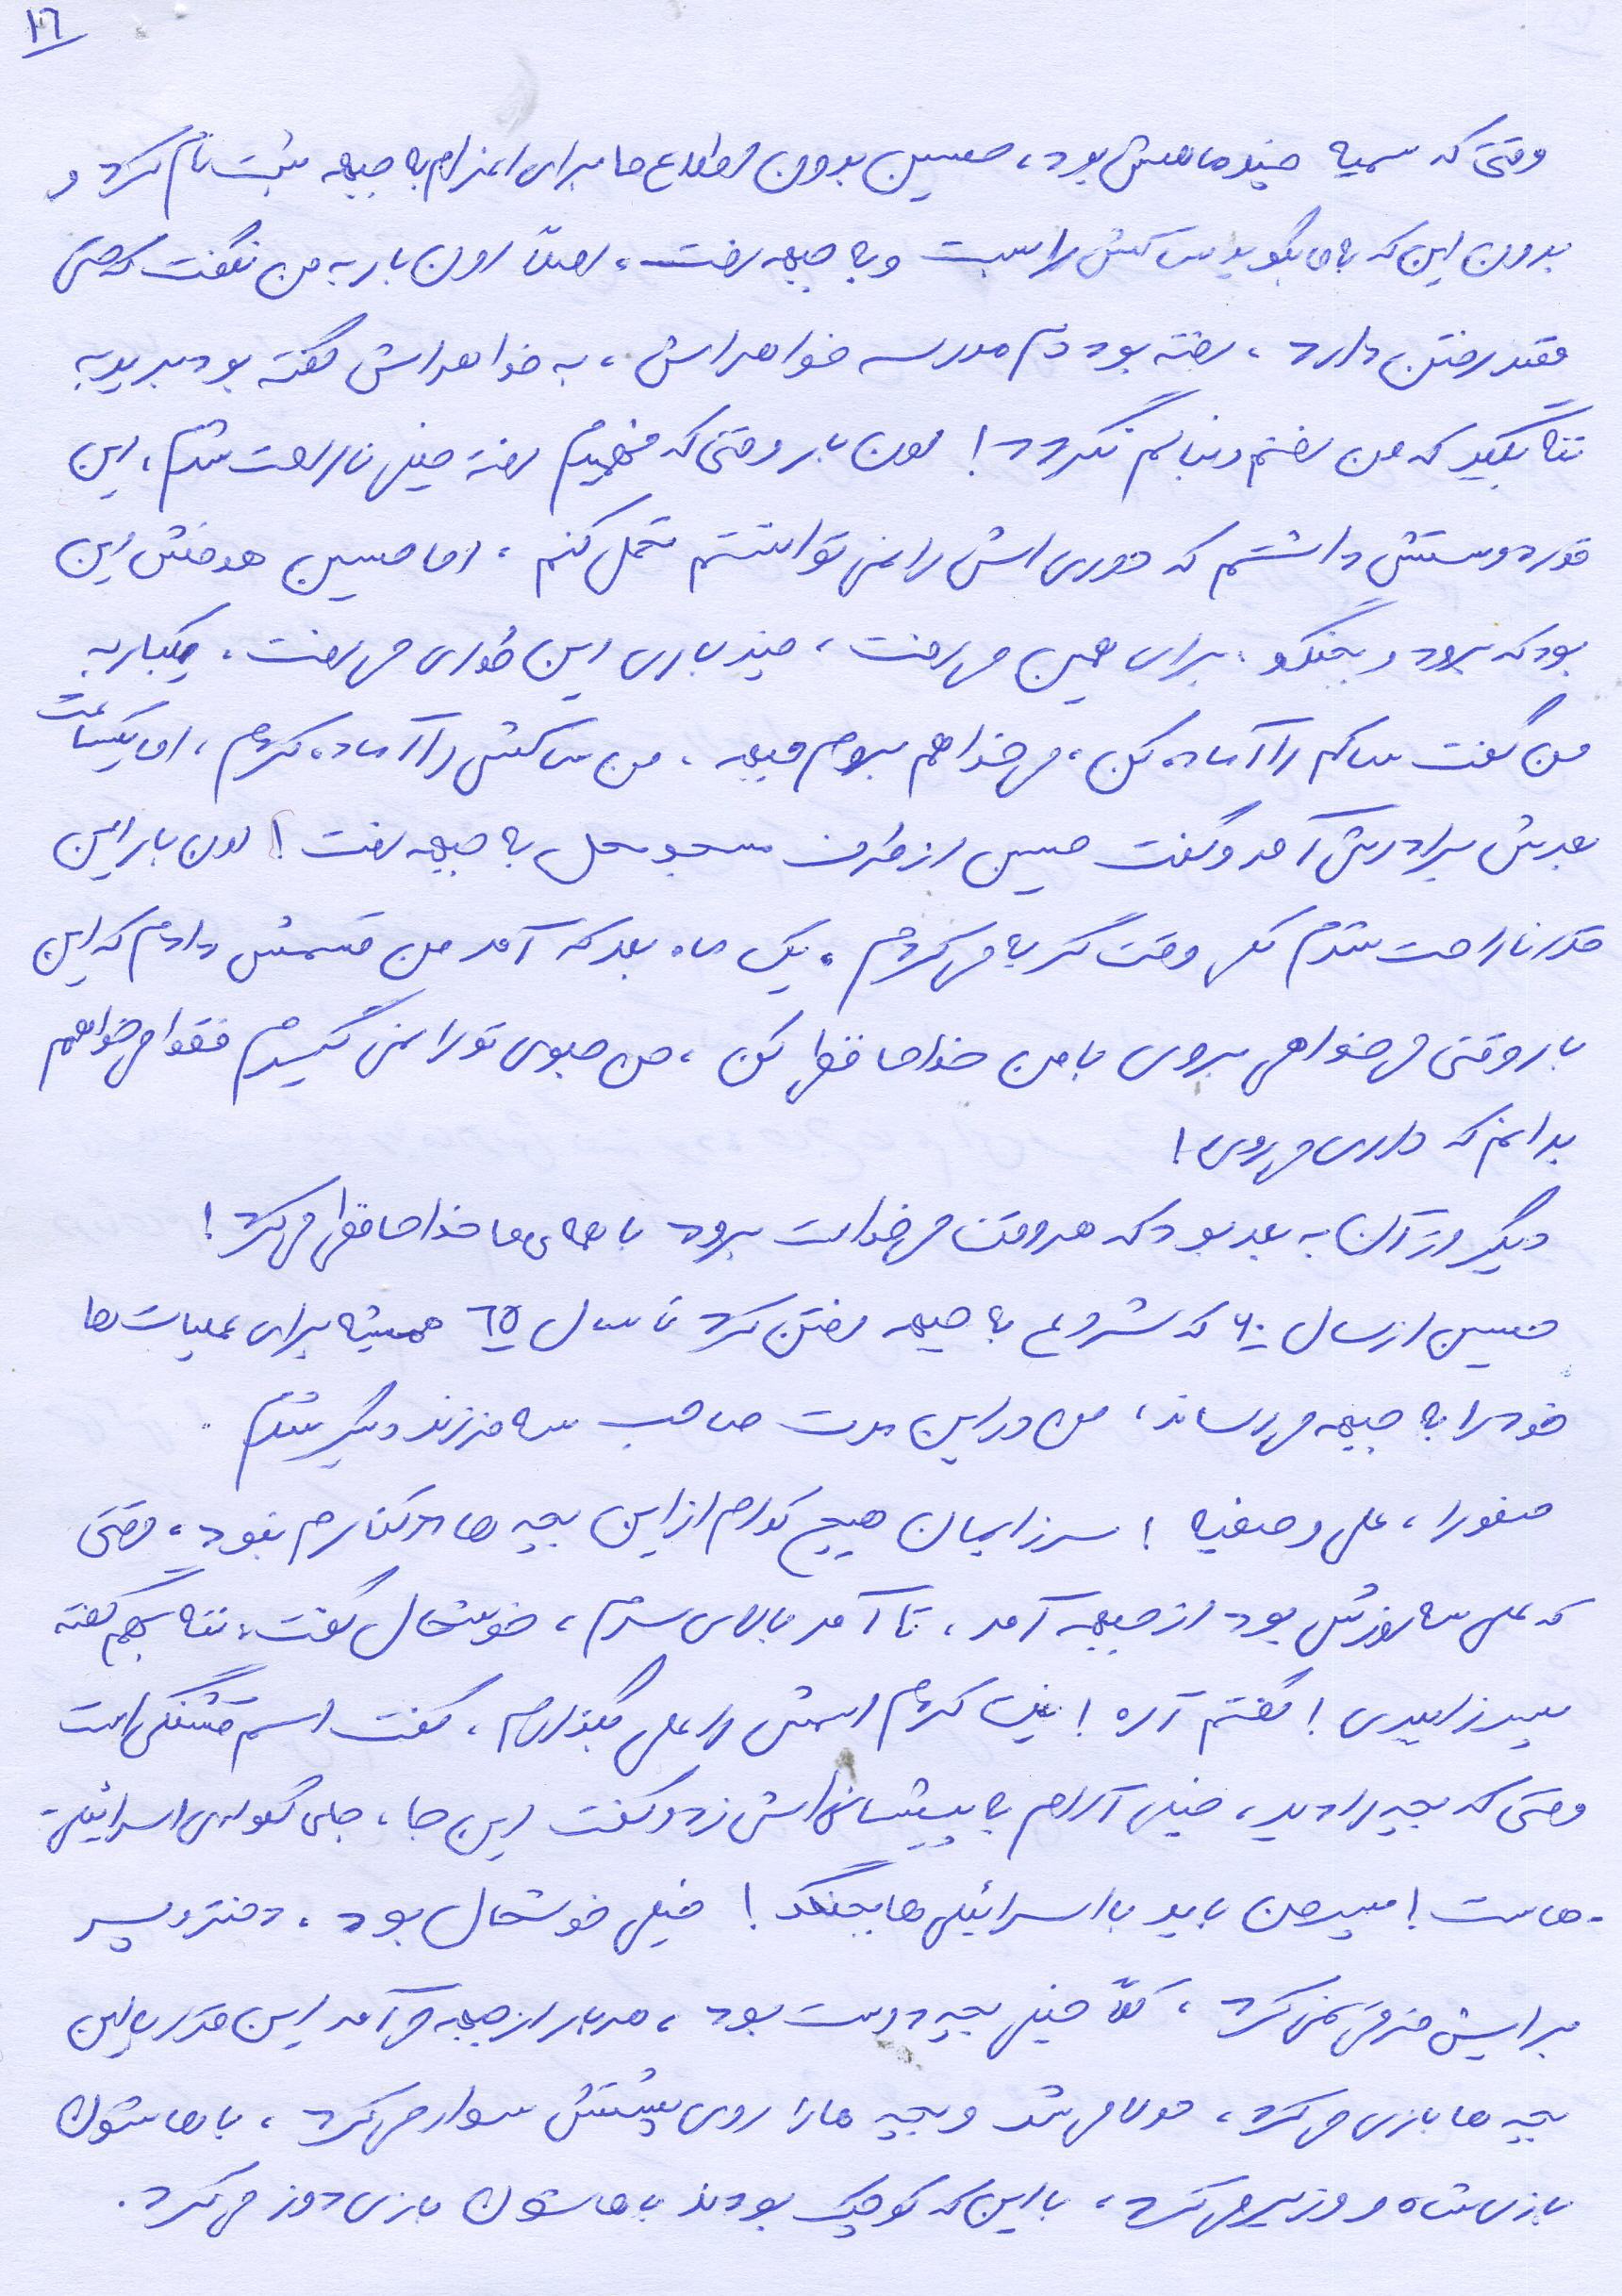 ١٦
وقتی که سمیه چند ماهش بود، حسین بدون اطلاع ما برای اعزام به جبهه ثبت نام کرد و
بدون این که به ما بگوید ساکش را بست و به جبهه رفت، اصلاً اون بار به من نگفت که حتی
قصد رفتن دارد، رفته بود دم مدرسه خواهراش، به خواهراش گفته بود برید به
ننه بگید که من رفتم دنبالم نگردد! اون بار وقتی که فهمیدم رفته خیلی ناراحت شدم، این
قدر دوستش داشتم که دوری اش را نمی توانستم تحمل کنم، اما حسین هدفش این
بود که برود و بجنگد. برای همین می رفت، چند باری این طوری می رفت، یکبار به
من گفت ساکم را آماده کن، می خواهم بروم جبهه، من ساکش را آماده کردم، اما یکساعت
بعدش برادرش آمد و گفت حسین از طرف مسجد محل به جبهه رفت! اون بار این
قدر ناراحت شدم کلی وقت گریه می کردم، یک ماه بعد که آمد من قسمش دادم که این
بار وقتی می خواهی بروی با من خداحافظی کن، من جلوی تو را نمی گیرم فقط می خواهم
بدانم که داری می روی!
دیگر از آن به بعد بود که هر وقت می خواست برود با همه ی ما خداحافظی می کرد!
حسین از سال ٦٠ که شروع به جبهه رفتن کرد تا سال ٦٥ همیشه برای عملیات ها
خود را به جبهه می رساند، من در این مدت صاحب سه فرزند دیگر شدم.
صفورا، علی و صفیه! سر زایمان هیچ کدام از این بچه ها در کنارم نبود، وقتی
که علی سه روزش بود از جبهه آمد، تا آمد بالای سرم، خوشحال گفت: ننه بهم گفته
پسر زاییدی! گفتم آره! نیت کردم اسمش را علی بگذارم، گفت اسم قشنگی است
وقتی که بچه را دید، خیلی آرام به پیشانی اش زد و گفت این جا، جای گلوله ی اسرائیلی-
-هاست! پسر من باید با اسرائیلی ها بجنگد! خیلی خوشحال بود، دختر و پسر
برایش فرقی نمی کرد، کلاً خیلی بچه دوست بود، هر بار از جبهه می آمد این قدر با این
بچه ها بازی می کرد، دولا می شد و بچه ها را روی پشتش سوار می کرد، باهاشون
بازی شاه و وزیر می کرد، با این که کوچک بودند باهاشون بازی دوز می کرد.